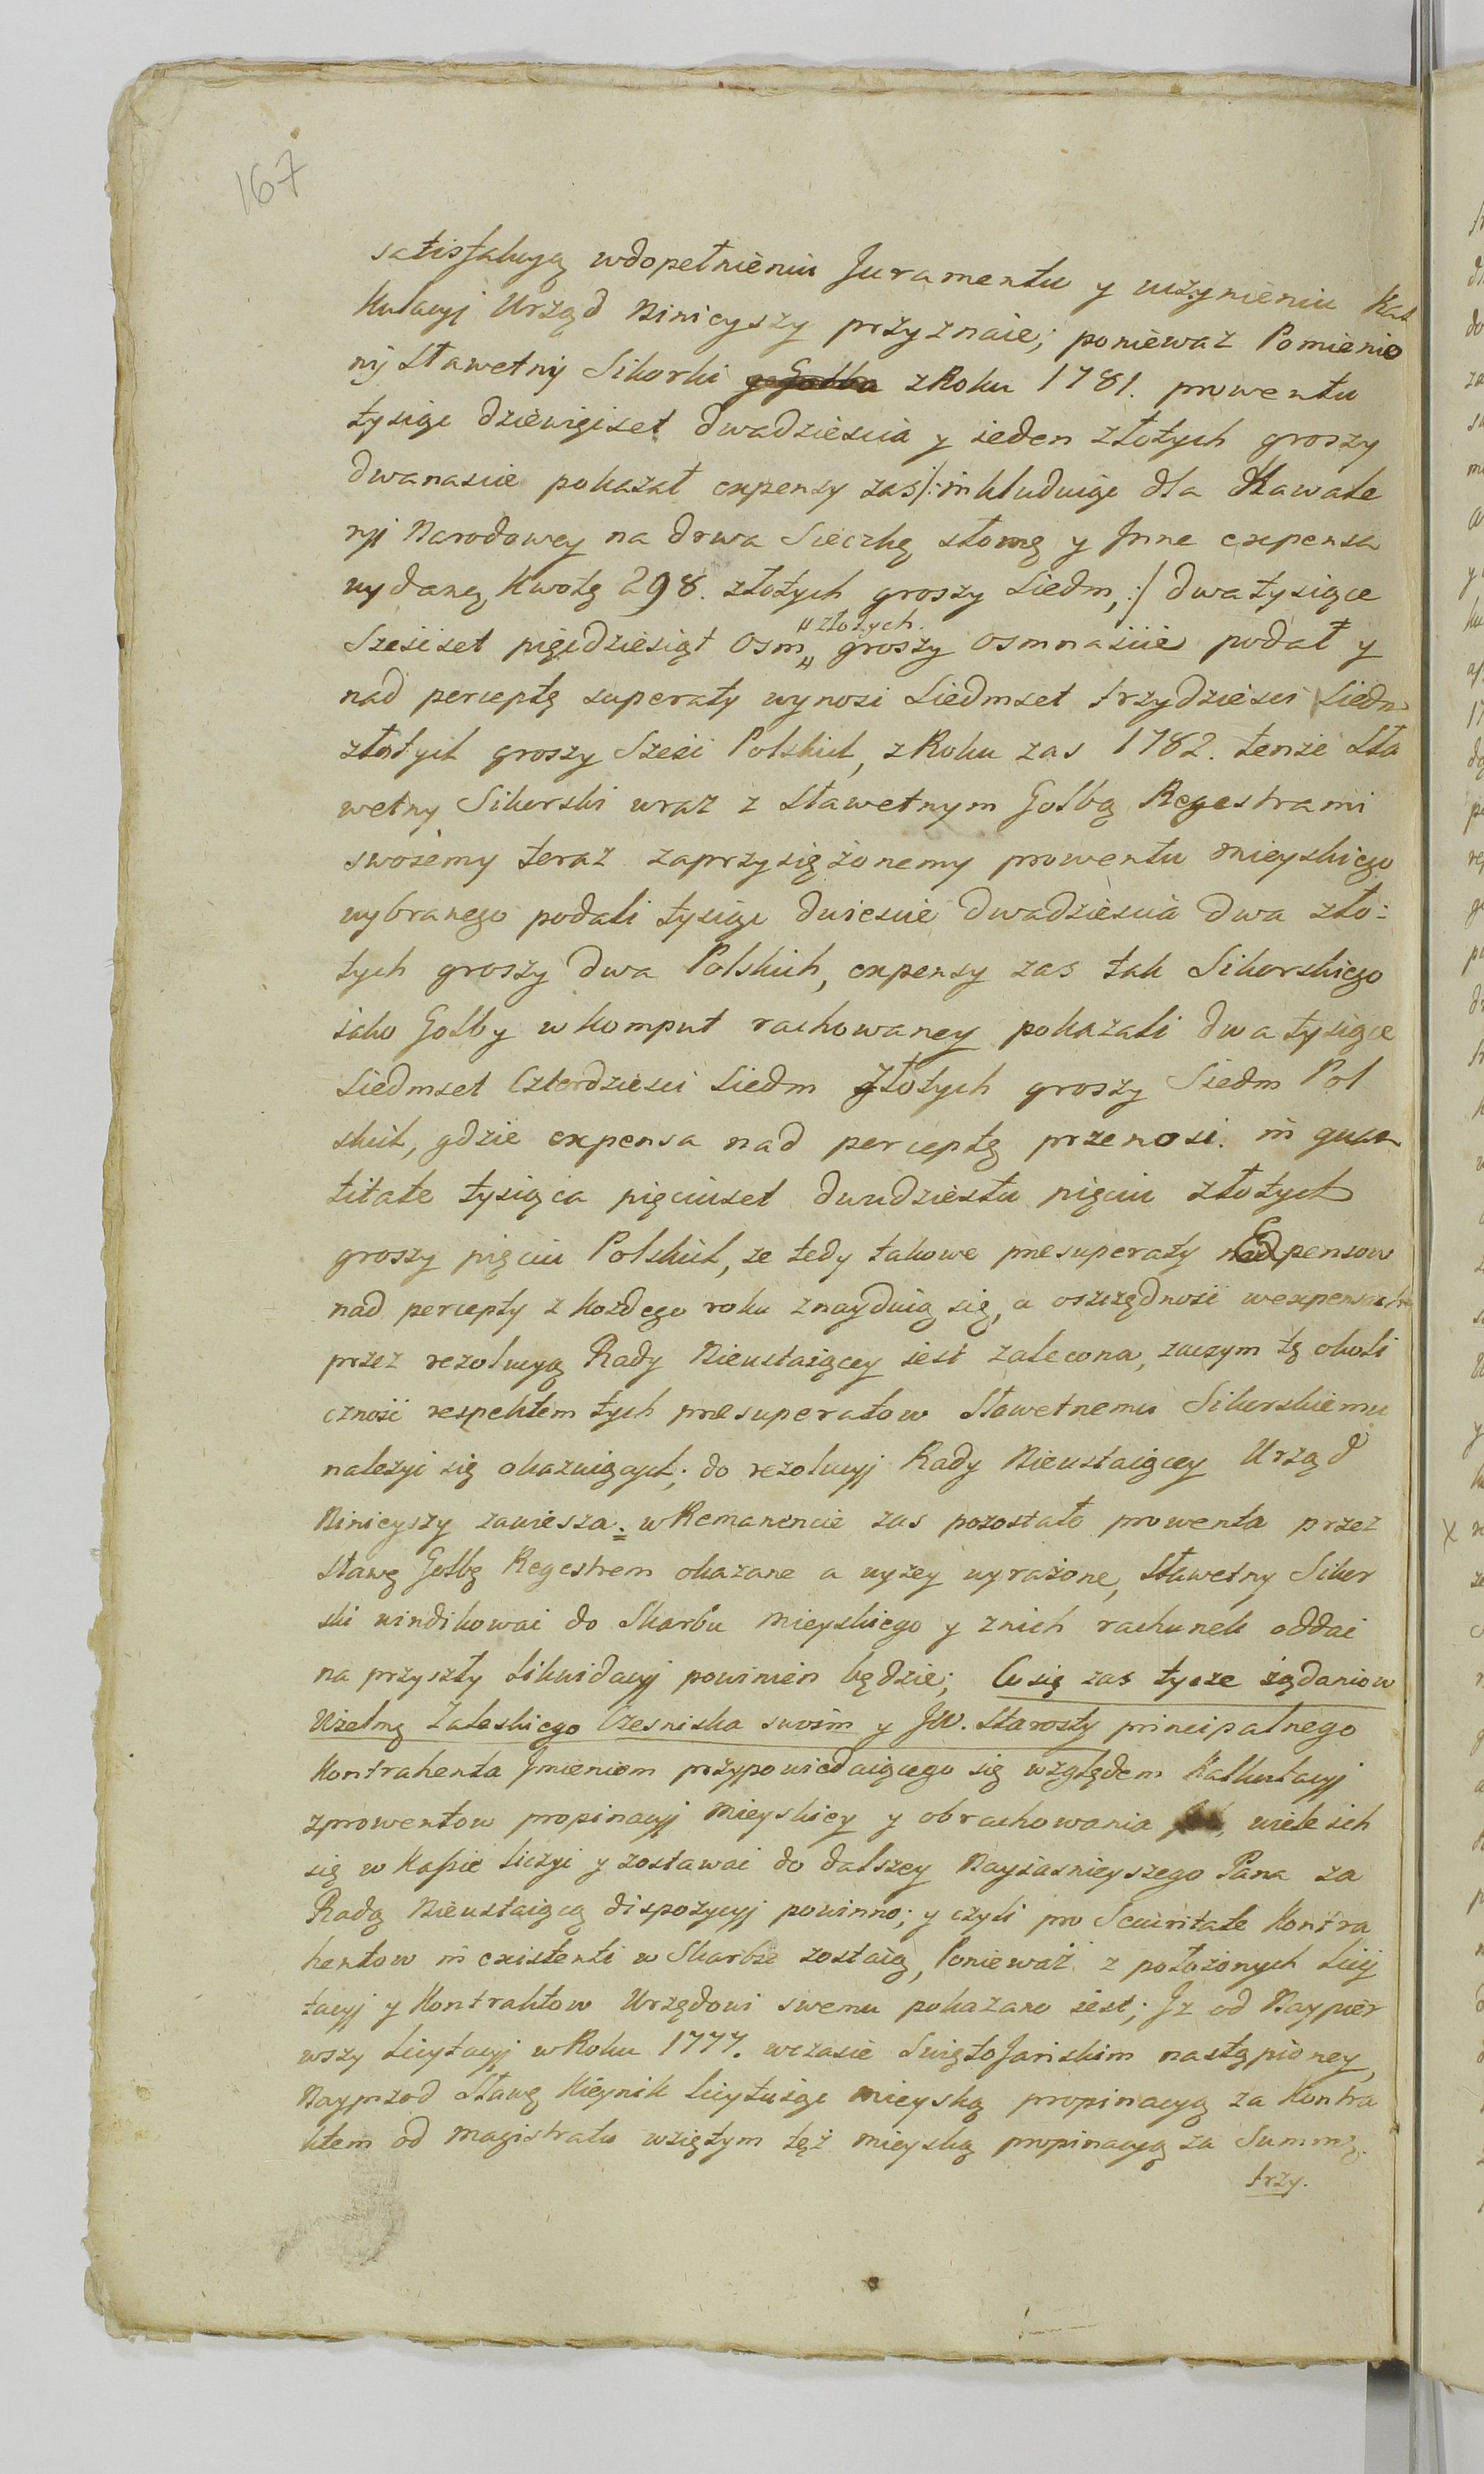 167
satisfakcyą wdopełnieniu Juramentu y uczynieniu Kal
kulacyj Urząd Ninieyszy przyznaie; ponieważ Pomienio
ny Sławetny Sikorki zRoku 1781. prowentu
tysiąc dziewięcset dwadziescia y ieden złotych groszy
dwanascie pokazał expensy zas /: inkluduiąc dla Kawale
ryj Narodowey na drwa Sieczkę słomę y Jnne expensa
wydaną kwotę 298. złotych groszy siedm, :/ dwa tysiące
Szescset pięcdziesiąt Osm „złotych„ groszy osmnascie podał y
nad perceptę superaty wynosi siedmset trzydziesci siedm
złotych groszy Szesc Polskich, zRoku zas 1782. tenze Sła
wetny Sikorski wraz z Sławetnym Gołbą Regestrami
swoiemy teraz zaprzysięzonemy prowentu mieyskiego
wybranego podali tysiąc dwiescie dwadziescia dwa zło:
tych groszy dwa Polskich, expensy zas tak Sikorskiego
iako Gołby w komput rachowaney pokazali dwa tysiące
siedmset Czterdziesci siedm złotych groszy Siedm Pol
skich, gdzie expensa nad perceptę przenosi. in quan
titate tysiąca pięciuset dwudziestu pięciu złotych
groszy pięciu Polskich, ze tedy takowe przesuperaty Expensow
nad percepty z kozdego roku znayduią się, a oszczędnosc wexpensach
przez rezolucyą Rady Nieustaiącey iest zalecona, zaczym tę okoli
cznosc respektem tych przesuperatow Sławetnemu Sikorskiemu
nalezyc się okazuiących; do rezolucyj Rady Nieustaiącey Urząd
Ninieyszy zawiesza. wRemanencie zas pozostałe prowenta przez
Sławę Gołbę Regestrem okazane a wyzey wyrażone, Sławetny Sikor
ski windikowac do Skarbu mieyskiego y znich rachunek oddac
na przyszły Likwidacyj powinien będzie; Co się zas tycze żądaniow
Wielmę Zaleskiego Czesnika swoim y JW. Starosty principalnego
Kontrahenta Jmieniem przypowiedaiącego się względem Kalkulacyj
zprowentow propinacyj mieyskiey y obrachowania wiele ich
się w Kassie liczyc y zostawac do dalszey Nayiasnieyszego Pana za
Radą Nieustaiącą dispozycyj powinno; y czyli pro Securitate Kontra
hentow in existenti w Skarbie zostaią, Ponieważ z położonych Licy
tacyj y Kontraktow Urzędowi swemu pokazano iest; Jz od Naypier
wszy Licytacyj wRoku 1777. wczasie SwiętoJańskim nastąpioney,
Nayprzod Sławę Kieynik licytuiąc mieyską propinacyą za Kontra
ktem od magistratu wziętym tęż mieyską propinacyą za Summę.
trzy.